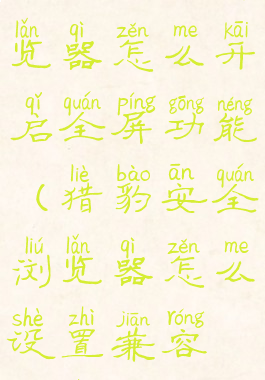 lǎn qì zěn me kāi
览器怎么开
qǐ quán píng gōng néng
启全屏功能
liè bào ān quán
（猎豹安全
liú lǎn qì zěn me
浏览器怎么
shè zhì jiān róng
设置兼容